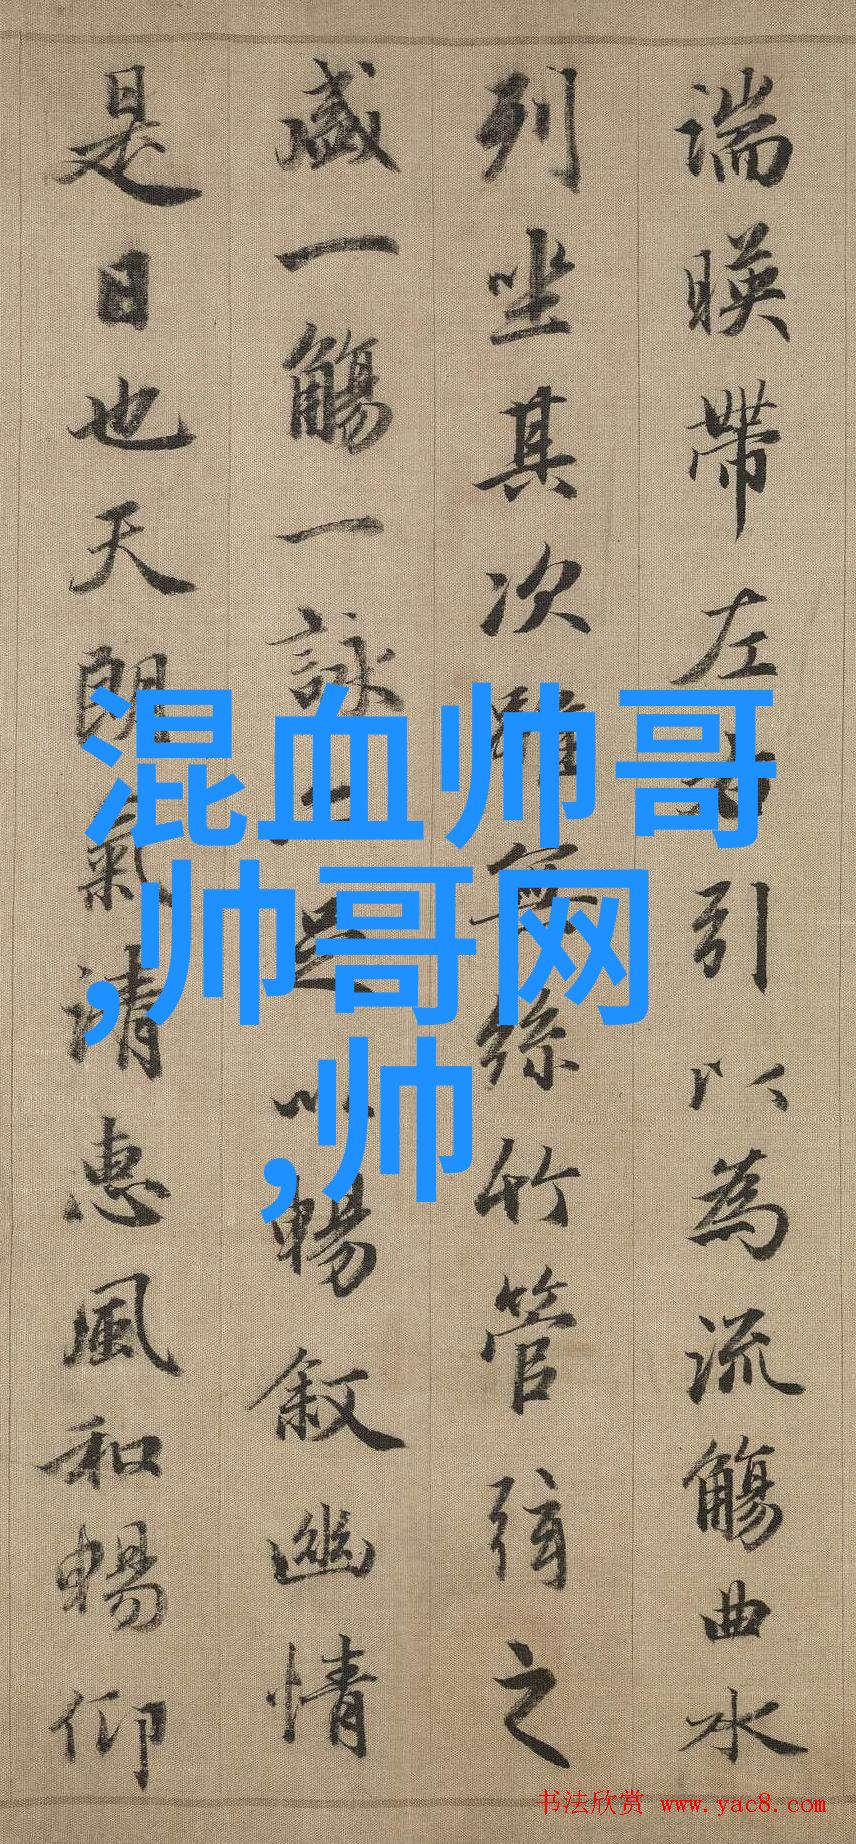 湍暎帶左右引以為流觴曲水
列坐其次雖無絲竹管弦之
盛一觴一詠足以暢叙幽情
是日也天朗氣清惠風和暢仰
混血帅哥
,帅哥网
,帅
书法欣赏 www.yac8.com